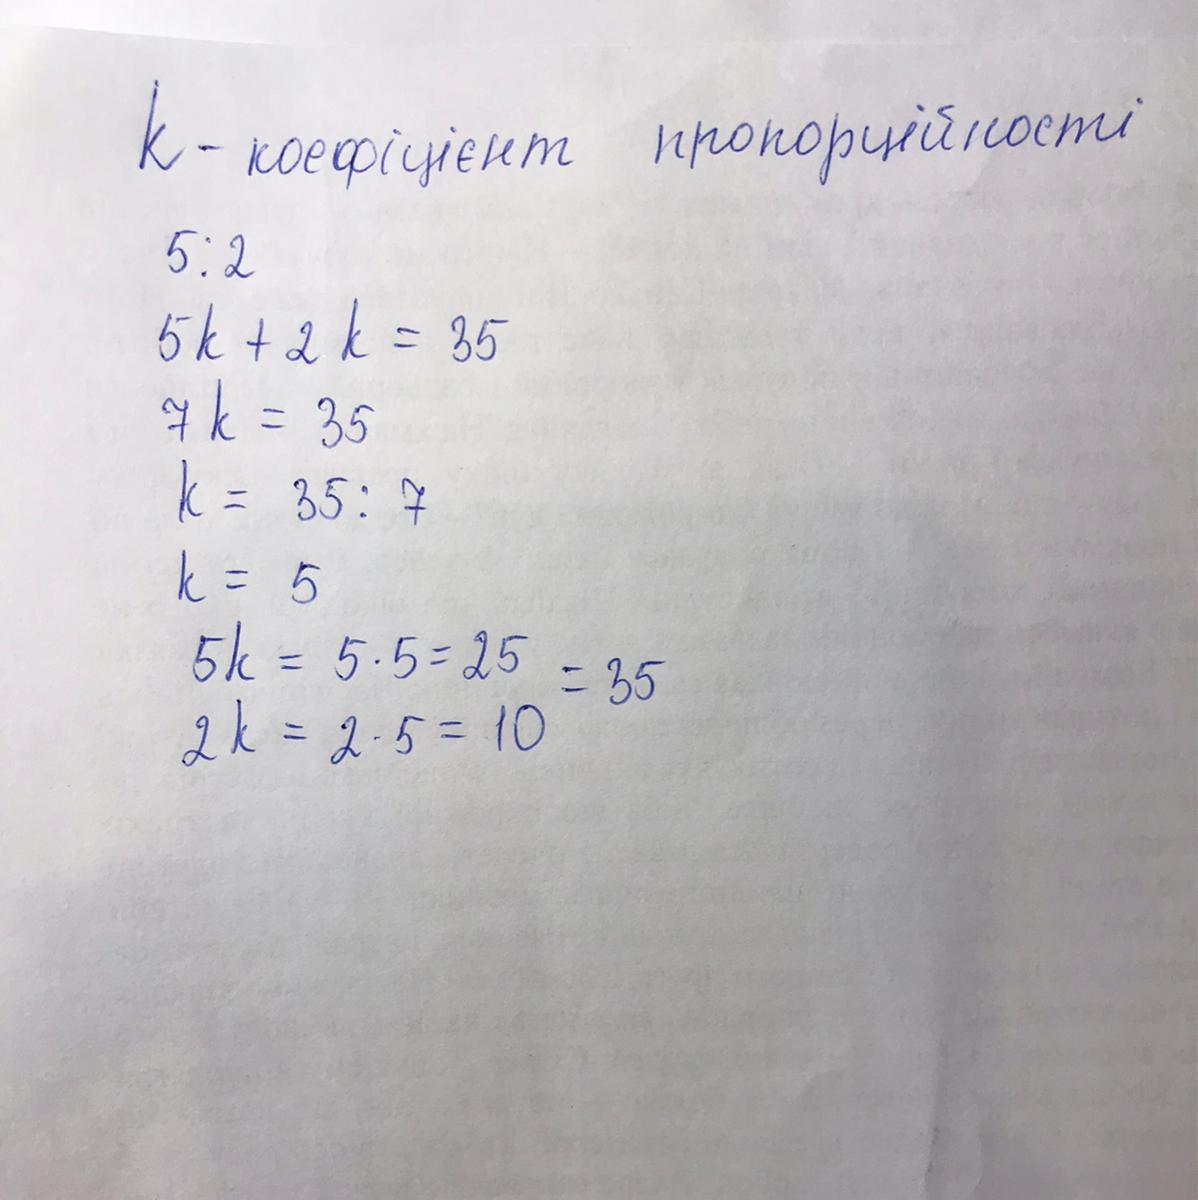 k - коефіцієнт пропорційності
5:2
5k + 2k = 35
7k = 35
k = 35: 7
k = 5
5k = 5·5 = 25
= 35
2k = 2·5 = 10